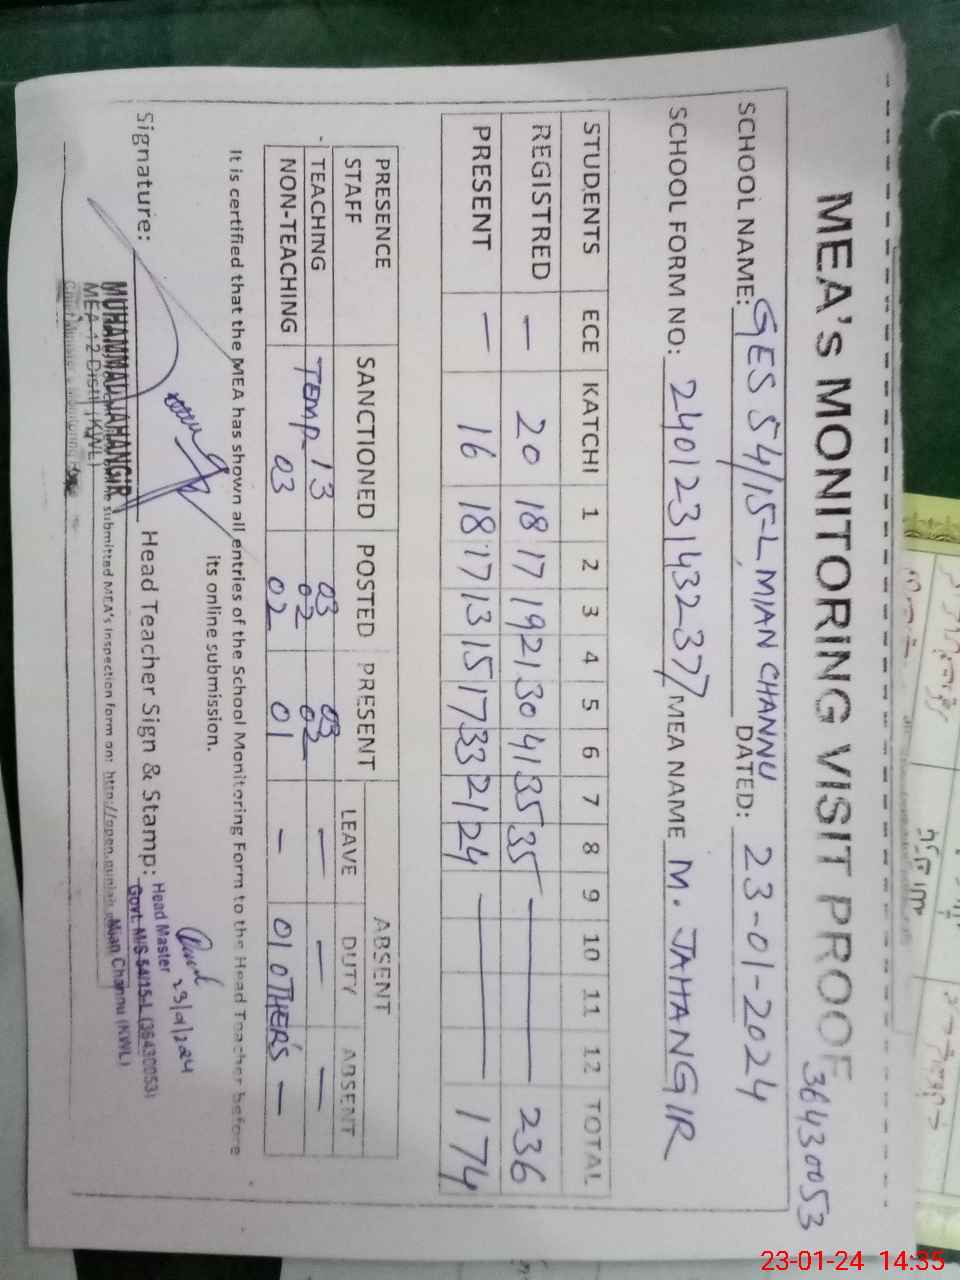 MEA's MONITORING VISIT PROOF
36430053
SCHOOL NAME: GES 54/15-L, MIAN CHANNU DATED: 23-01-2024
SCHOOL FORM NO: 240123143237 MEA NAME M. JAHANGIR
STUDENTS ECE KATCHI 1 2 3 4 5 6 7 8 9 10 11 12 TOTAL
REGISTRED — 20 18 17 19 21 30 41 35 35 — 236
PRESENT — 16 18 17 13 15 17 33 21 24 — 174
PRESENCE STAFF SANCTIONED POSTED PRESENT ABSENT
LEAVE DUTY ABSENT
TEACHING Temp 13 03 02 03 02 — — —
NON-TEACHING 03 02 01 — 01 OTHER'S —
It is certified that the MEA has shown all entries of the School Monitoring Form to the Head Teacher before
its online submission.
Signature: Head Teacher Sign & Stamp:
23/1/2024
Head Master
Govt. M/S 54/15-L (36430053)
Mian Channu (KWL)
MUHAMMAD JAHANGIR
MEA-12 Distt. (KWL)
submitted MEA's inspection form on: http://open.punjab
23-01-24 14:35